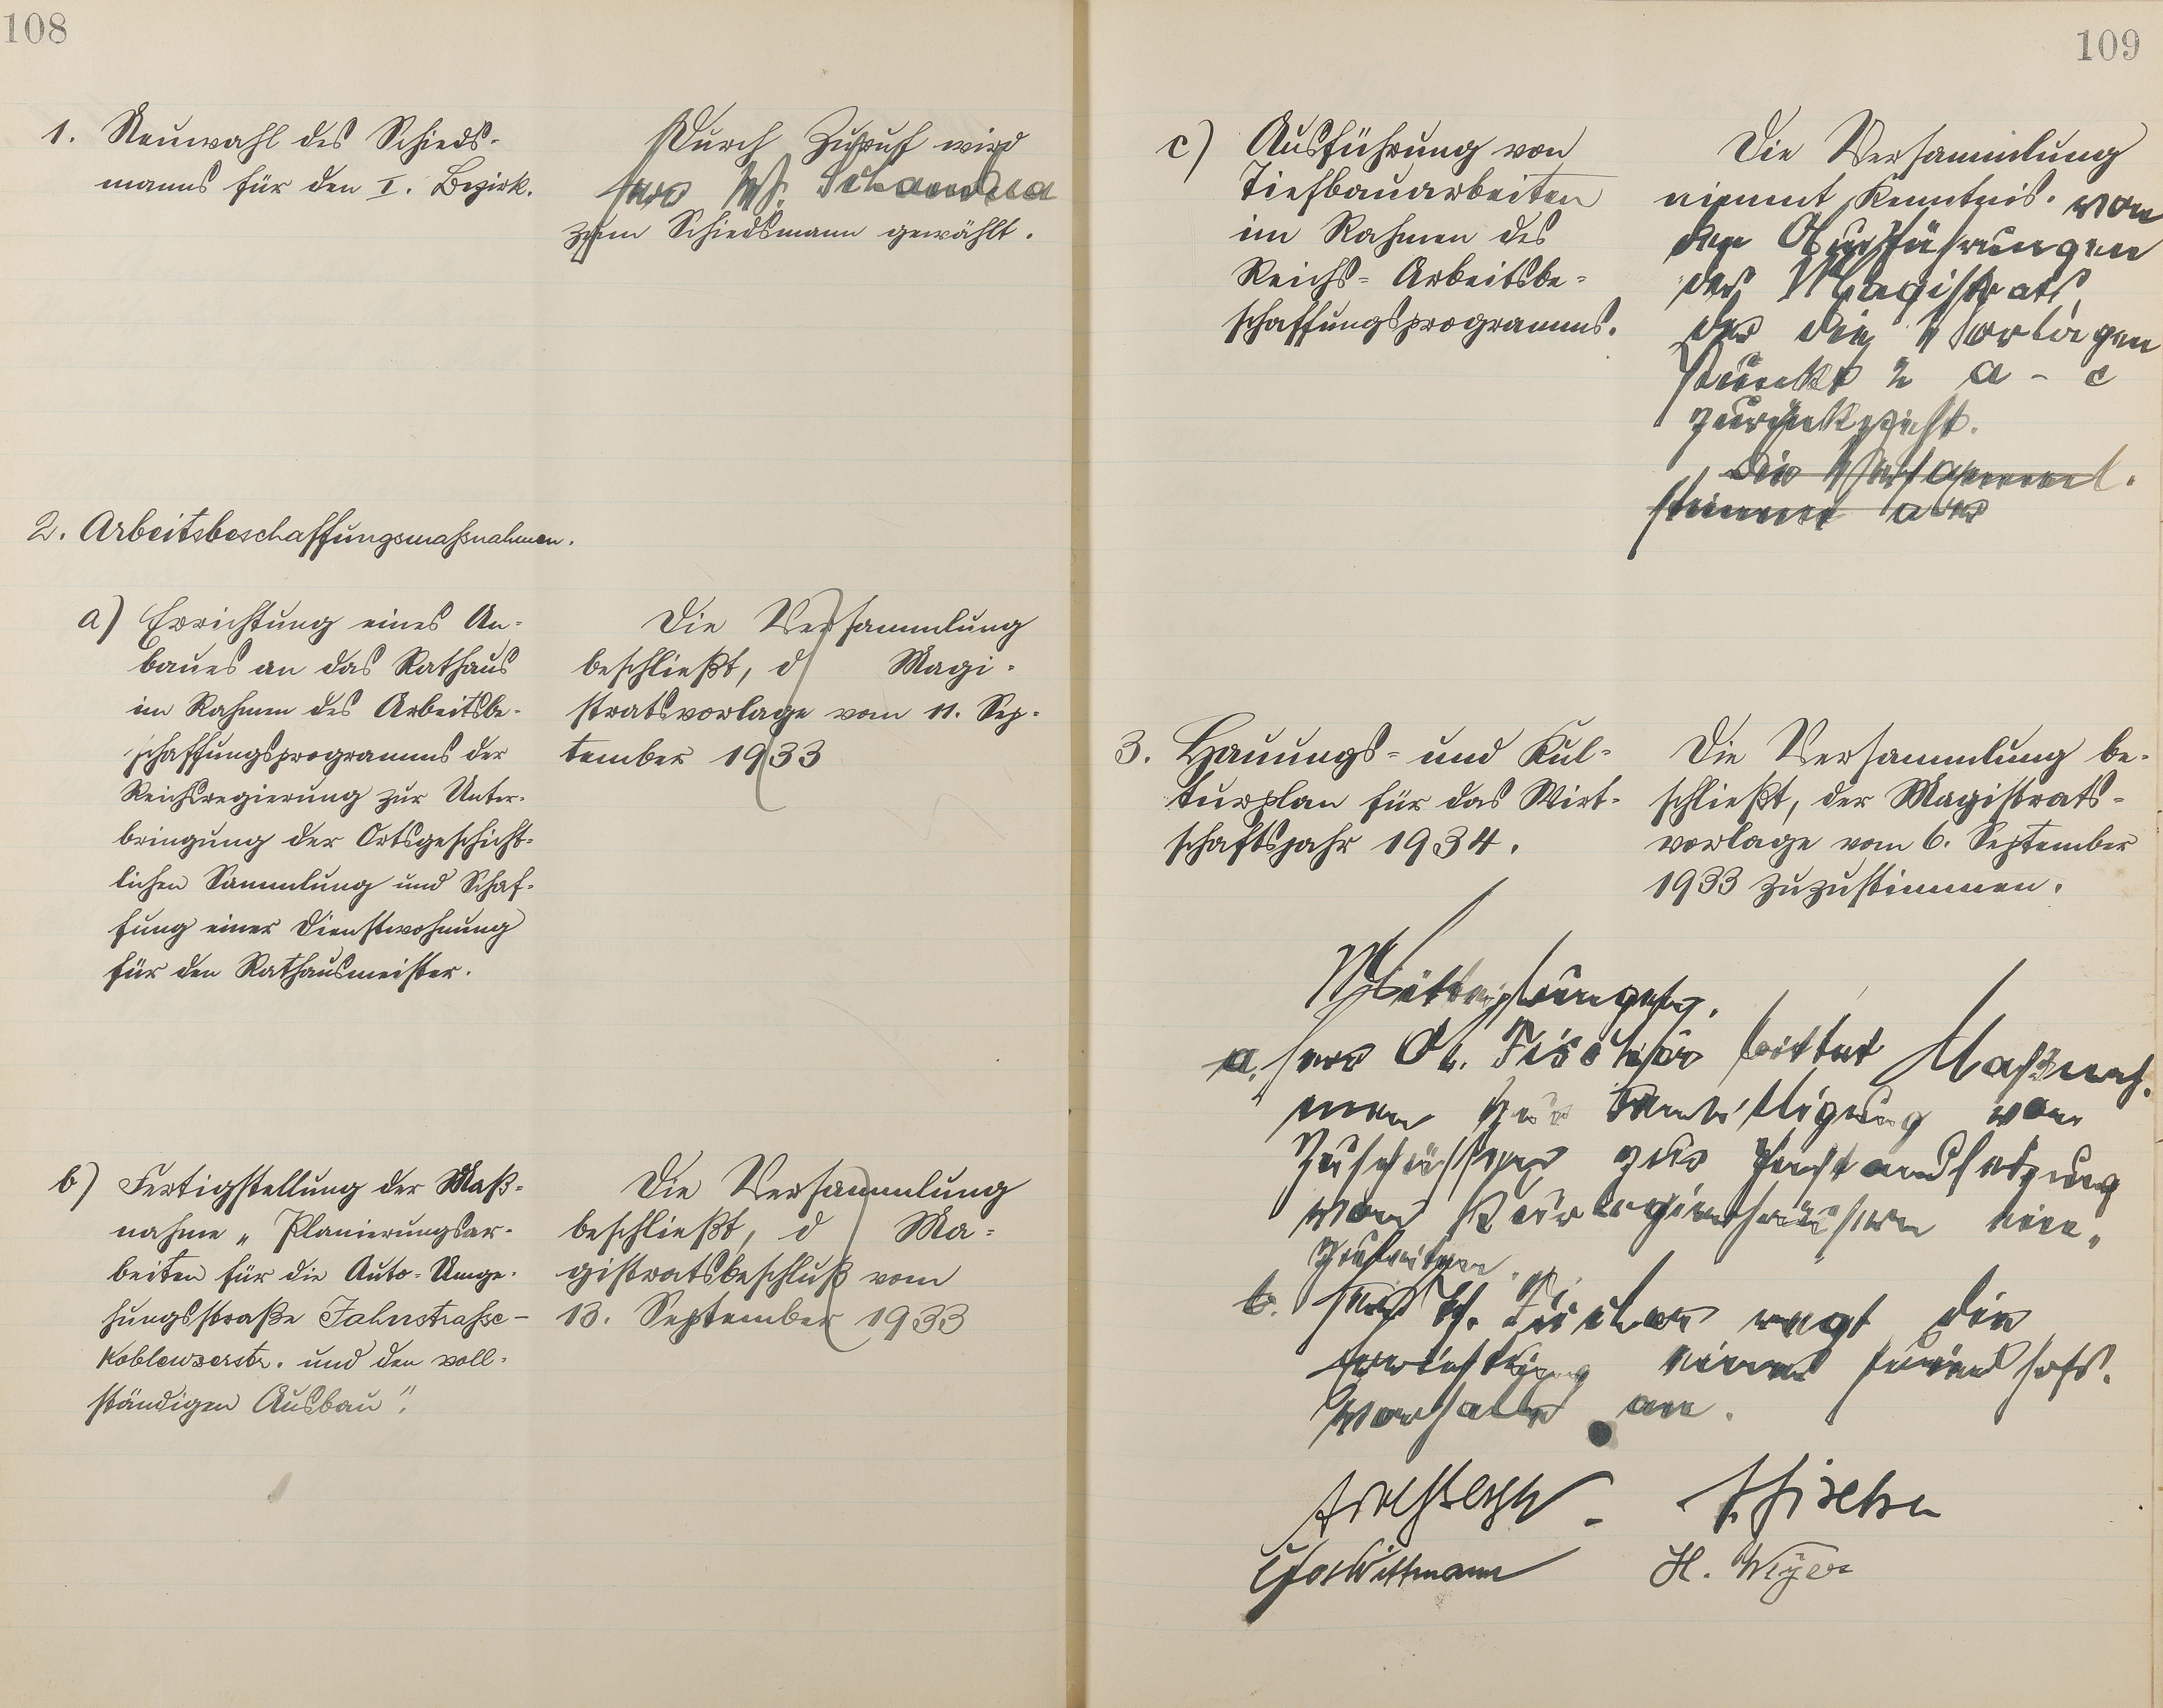 108
1. Neuwahl des Schieds-
manns für den I. Bezirk.
Durch Zuruf wird
Herr W. Schandua
zum Schiedsmann gewählt.
2. Arbeitsbeschaffungsmaßnahmen.
a) Errichtung eines An-
baues an das Rathaus
im Rahmen des Arbeitsbe-
schaffungsprogramms der
Reichsregierung zur Unter-
bringung der Ortsgeschicht-
lichen Sammlung und Schaf-
fung einer Dienstwohnung
für den Rathausmeister.
Die Versammlung
beschließt, d Magi-
stratsvorlage vom 11. Sep-
tember 1933
b) Fertigstellung der Maß-
nahme „Planierungsar-
beiten für die Auto-Umge-
hungsstraße Jahnstraße-
Koblenzerstr. und den voll-
ständigen Ausbau".
Die Versammlung
beschließt, d Ma-
gistratsbeschluß vom
13. September 1933
109
c) Ausführung von
Tiefbauarbeiten
im Rahmen des
Reichs-Arbeitsbe-
schaffungsprogramms.
Die Versammlung
nimmt Kenntnis. von
den Ausführungen
des Magistrats,
der die Vorlagen
Punkt 2 a - c
zurückzieht.
Die Versamml.
stimmt
3. Hauungs- und Kul-
turplan für das Wirt-
schaftsjahr 1934.
Die Versammlung be-
schließt, der Magistrats-
vorlage vom 6. September
1933 zuzustimmen.
Mitteilungen.
a. Herr A. Fischer bittet Maßnah-
men zur Bewilligung von
Zuschüssen zur Instandsetzung
von Kurlogierhäusern ein-
zuleiten.
b. Herr Fischer regt die
Errichtung eines
an.
Fischer
Wittmann
H. Meyer